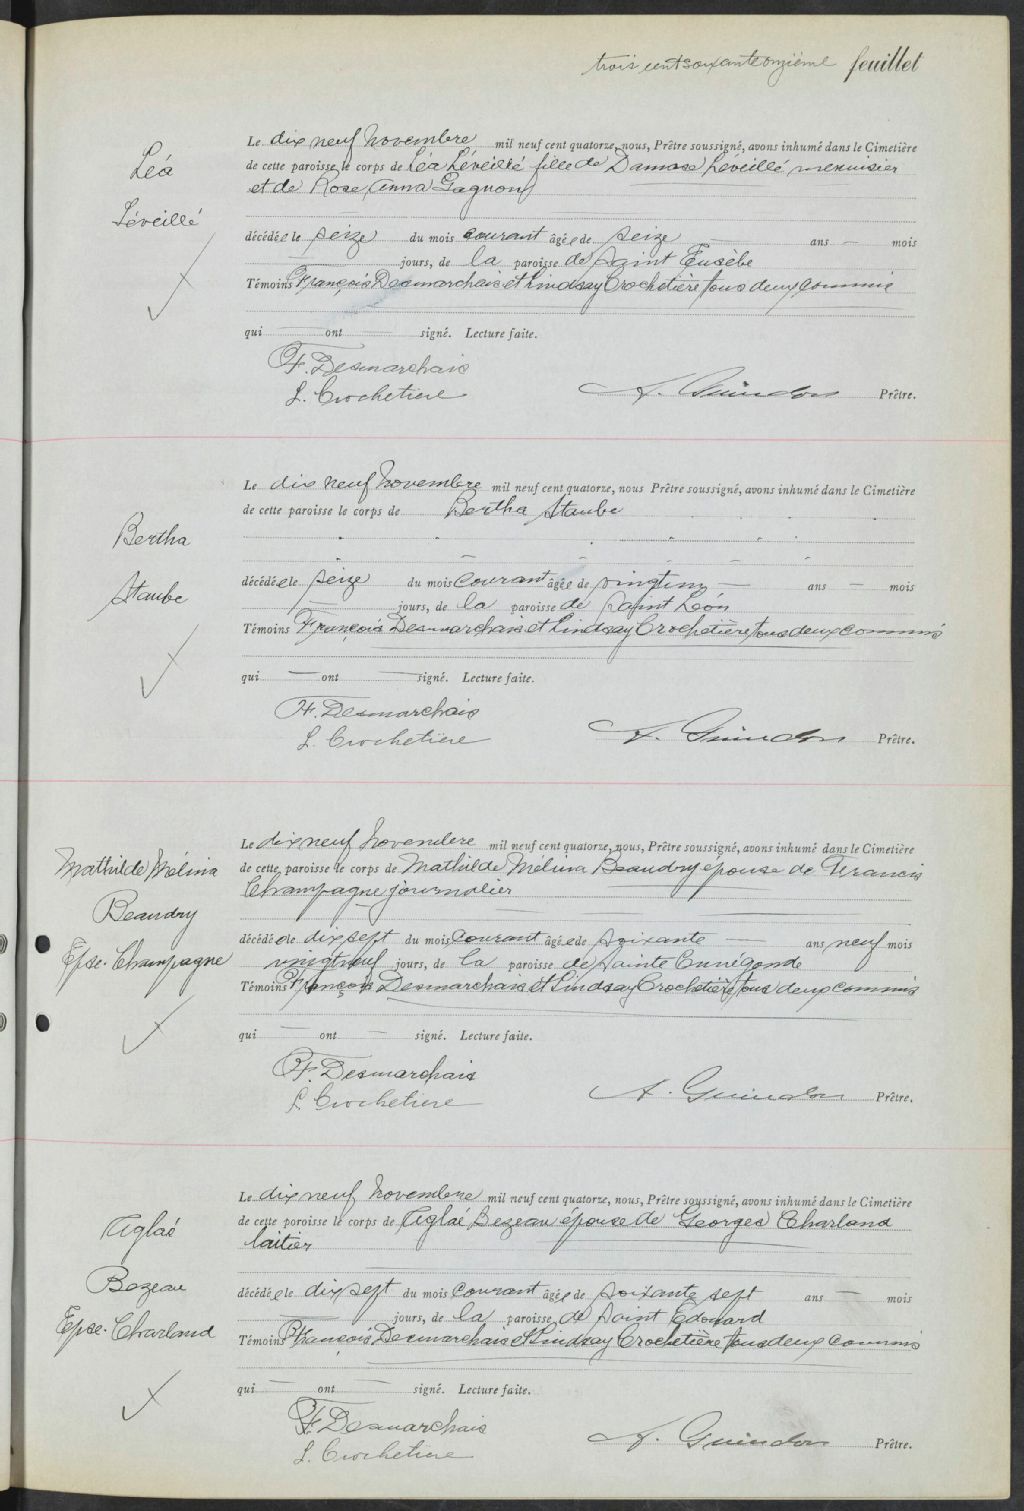 trois cent soixante onzième feuillet
Léa
Léveillé
Le dix neuf Novembre mil neuf cent quatorze, nous, Prêtre soussigné, avons inhumé dans le Cimetière
de cette paroisse le corps de Léa Léveillé fille de Damase Léveillé menuisier
et de Rose Anna Gagnon
décédée le seize du mois courant âgée de seize — ans — mois
— jours, de la paroisse de Saint Eusèbe
Témoins François Desmarchais et Lindsay Crochetière tous deux commis
qui — ont — signé. Lecture faite.
F. Desmarchais
L. Crochetiere
A. Guindon Prêtre.
Bertha
Staube
Le dix neuf Novembre mil neuf cent quatorze, nous Prêtre soussigné, avons inhumé dans le Cimetière
de cette paroisse le corps de Bertha Staube
décédée le seize du mois courant âgée de vingt un — ans — mois
— jours, de la paroisse de Saint Léon
Témoins François Desmarchais et Lindsay Crochetière tous deux commis
qui — ont — signé. Lecture faite.
F. Desmarchais
L. Crochetiere
A. Guindon Prêtre.
Mathilde Mélina
Beaudry
Epse. Champagne
Le dix neuf Novembre mil neuf cent quatorze, nous, Prêtre soussigné, avons inhumé dans le Cimetière
de cette paroisse le corps de Mathilde Mélina Beaudry épouse de Francis
Champagne journalier
décédée le dix sept du mois courant âgée de soixante — ans neuf mois
vingt neuf jours, de la paroisse de Sainte Cunégonde
Témoins François Desmarchais et Lindsay Crochetière tous deux commis
qui — ont — signé. Lecture faite.
F. Desmarchais
L. Crochetiere
A. Guindon Prêtre.
Aglaé
Bezeau
Epse. Charland
Le dix neuf Novembre mil neuf cent quatorze, nous, Prêtre soussigné, avons inhumé dans le Cimetière
de cette paroisse le corps de Aglaé Bezeau épouse de Georges Charland
laitier
décédée le dix sept du mois courant âgée de soixante sept ans — mois
— jours, de la paroisse de Saint Edouard
Témoins François Desmarchais et Lindsay Crochetière tous deux commis
qui — ont — signé. Lecture faite.
F. Desmarchais
L. Crochetiere
A. Guindon Prêtre.